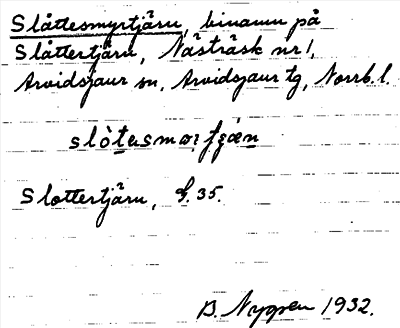 Slåttesmyrtjärn, binamn på
Slåttertjärn, Nästräsk nr 1,
Arvidsjaur sn, Arvidsjaur tg, Norrb. l.
Slottertjärn, G. 35.
B. Nygren 1932.